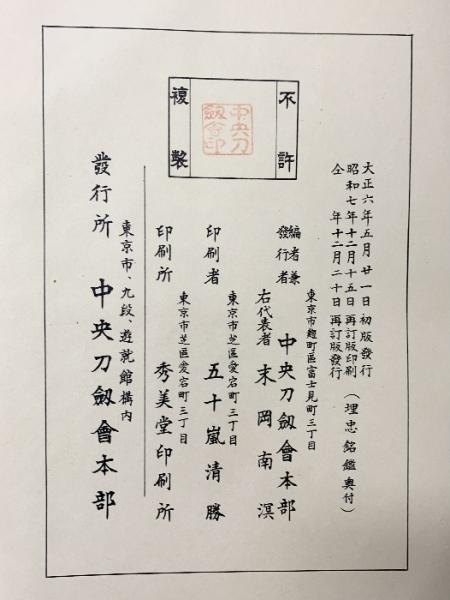 不許
複製
中央刀
劔會印
大正六年五月廿一日初版發行
昭和七年十二月十五日再訂版印刷
仝 年十二月二十日再訂版發行
(埋忠銘鑑奥付)
東京市麹町區富士見町三丁目
編者兼
發行者 中央刀劔會本部
右代表者 末岡南溟
東京市芝區愛宕町三丁目
印刷者 五十嵐清勝
東京市芝區愛宕町三丁目
印刷所 秀美堂印刷所
東京市、九段、遊就館構内
發行所 中央刀劔會本部